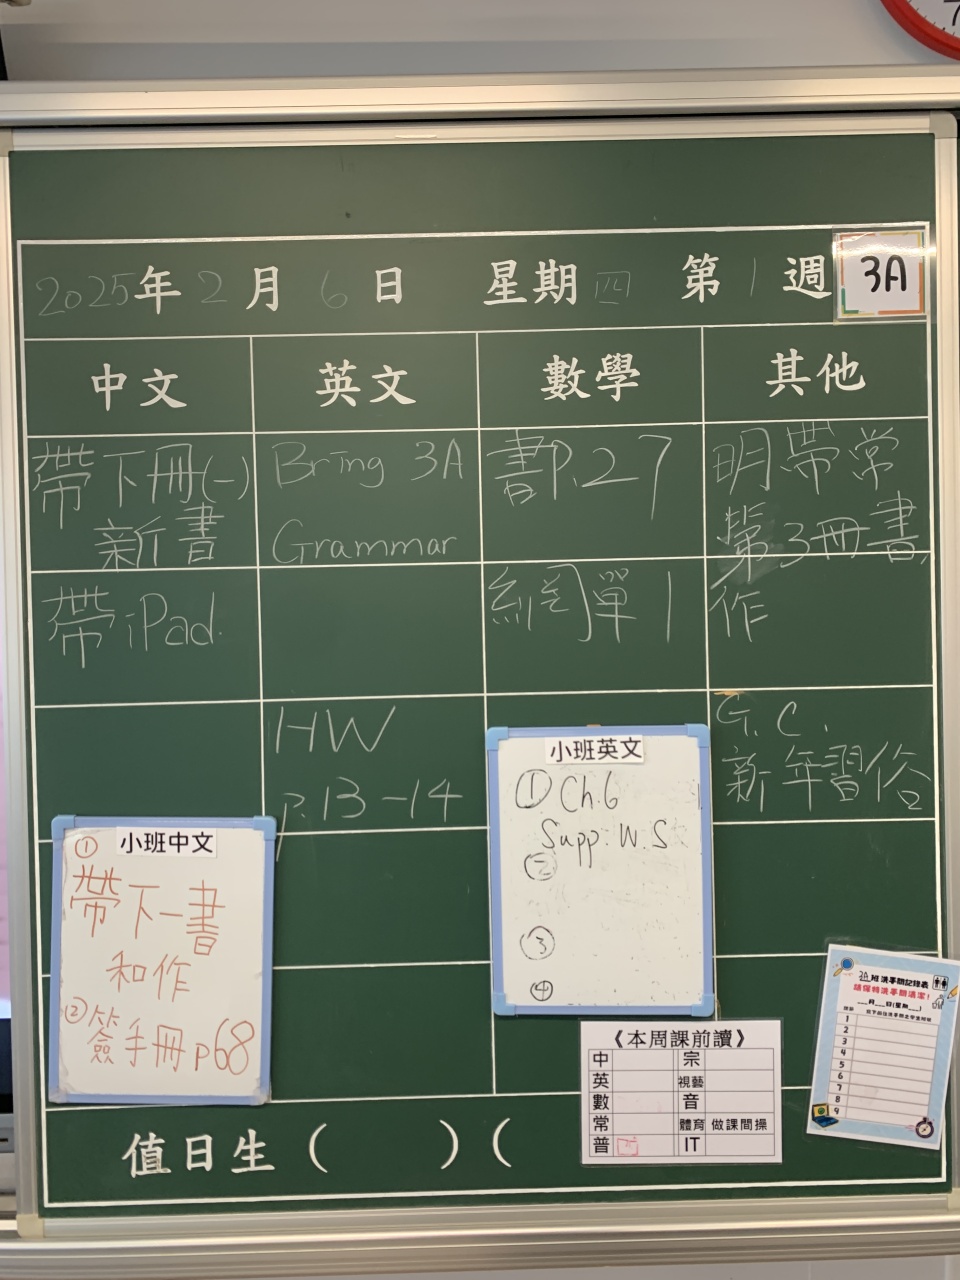 2025年2月6日 星期四 第1週 3A
中文 英文 數學 其他
帶下冊(一)
新書
帶iPad.
Bring 3A
Grammar
HW
p.13-14
書P.27
網單1
明帶常
第3冊書,
作
G.C.
新年習俗
小班中文
①
帶下一書
和作
②簽手冊p68
小班英文
①Ch.6
Supp. W.S
②
③
④
《本周課前讀》
中 宗
英 視藝
數 音
常 體育 做課間操
普 IT
3A班洗手間記錄表
請保持洗手間清潔!
月 日(星期 )
1
2
3
4
5
6
7
8
9
值日生( )(